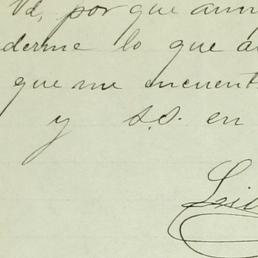 Vd, por que aun
derme lo que a
que me encuent
y S.S. en
Luis